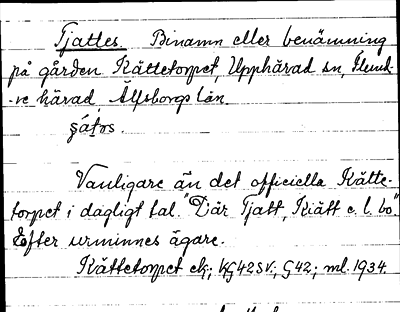 Tjattes. Binamn eller benämning
på gården Kättetorpet, Upphärad sn, Flund-
re härad, Älfsborgs län.
Vanligare än det officiella Kätte-
torpet i dagligt tal. "Där Tjatt, Kiätt c. l. bo".
Efter urminnes ägare.
Kättetorpet ek; KG42SV; G42; ml. 1934.